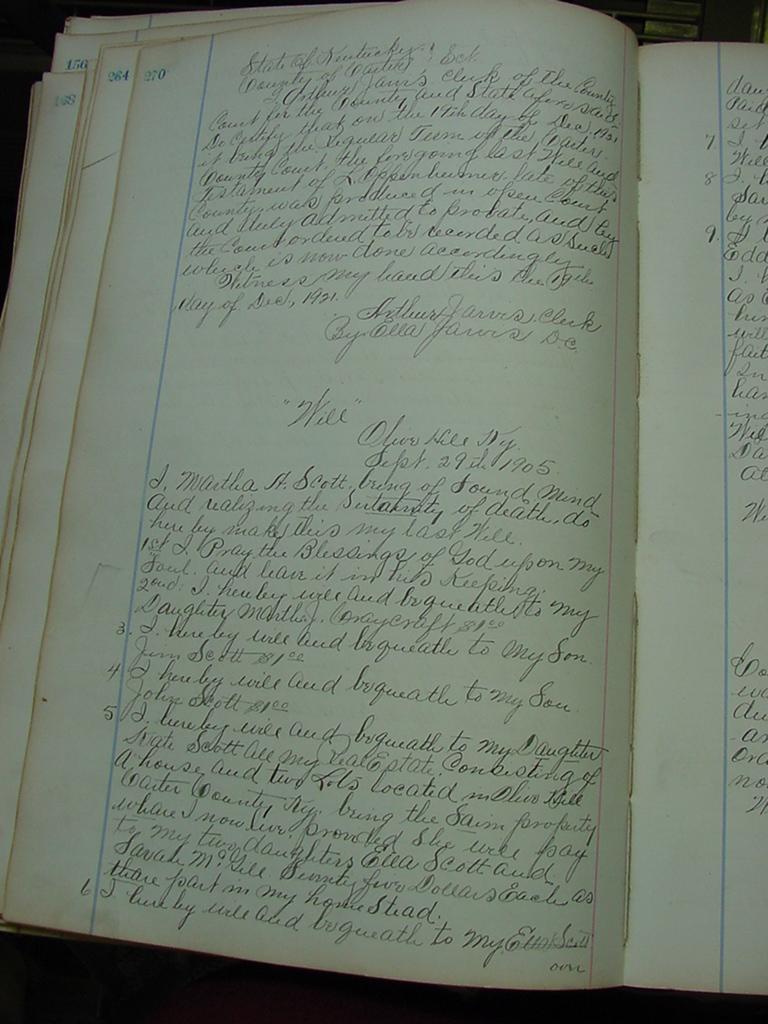 156
168
264
270
State of Kentucky } Sct.
County of Carter
I Arthur Jarvis clerk of the County
Court for the County and State afore said
Do Certify that on the 19th day of Dec, 1921
it being the Regular Term of the Carter
County Court the foregoing last Will and
Testament of L. Oppenheimer late of this
County, was produced in open Court
and duly admitted to probate, and by
the Court ordered to be recorded as Such
which is now done accordingly
Witness my hand this the 19th
day of Dec, 1921.
Arthur Jarvis, Clerk
By Ella Jarvis D.C.
"Will"
Olive Hill Ky.
Sept. 29th 1905.
I, Martha A. Scott, being of Sound Mind
and realizing the of death, do
here by make this my last Will.
1st I. Pray the Blessings of God upon my
Soul. and leave it in his Keeping.
2nd: I. hereby will and bequeath to my
Daughter Martha J. $1.00
3. I. hereby will and bequeath to my Son.
Jim Scott $1.00
4 I hereby will and bequeath to my Son
John Scott $1.00
5 I. hereby will and bequeath to my Daughter
Kate Scott all my Real Estate. Consisting of
A house, and two Lots located in Olive Hill
Carter County Ky. being the Saim property
where I now live, provided She will pay
to my two daughters Ella Scott and
Sarah McGill Seventy five Dollars Each, as
thare part in my home Stead.
6 I. hereby will and bequeath to my Scott
over
7.
8
9.